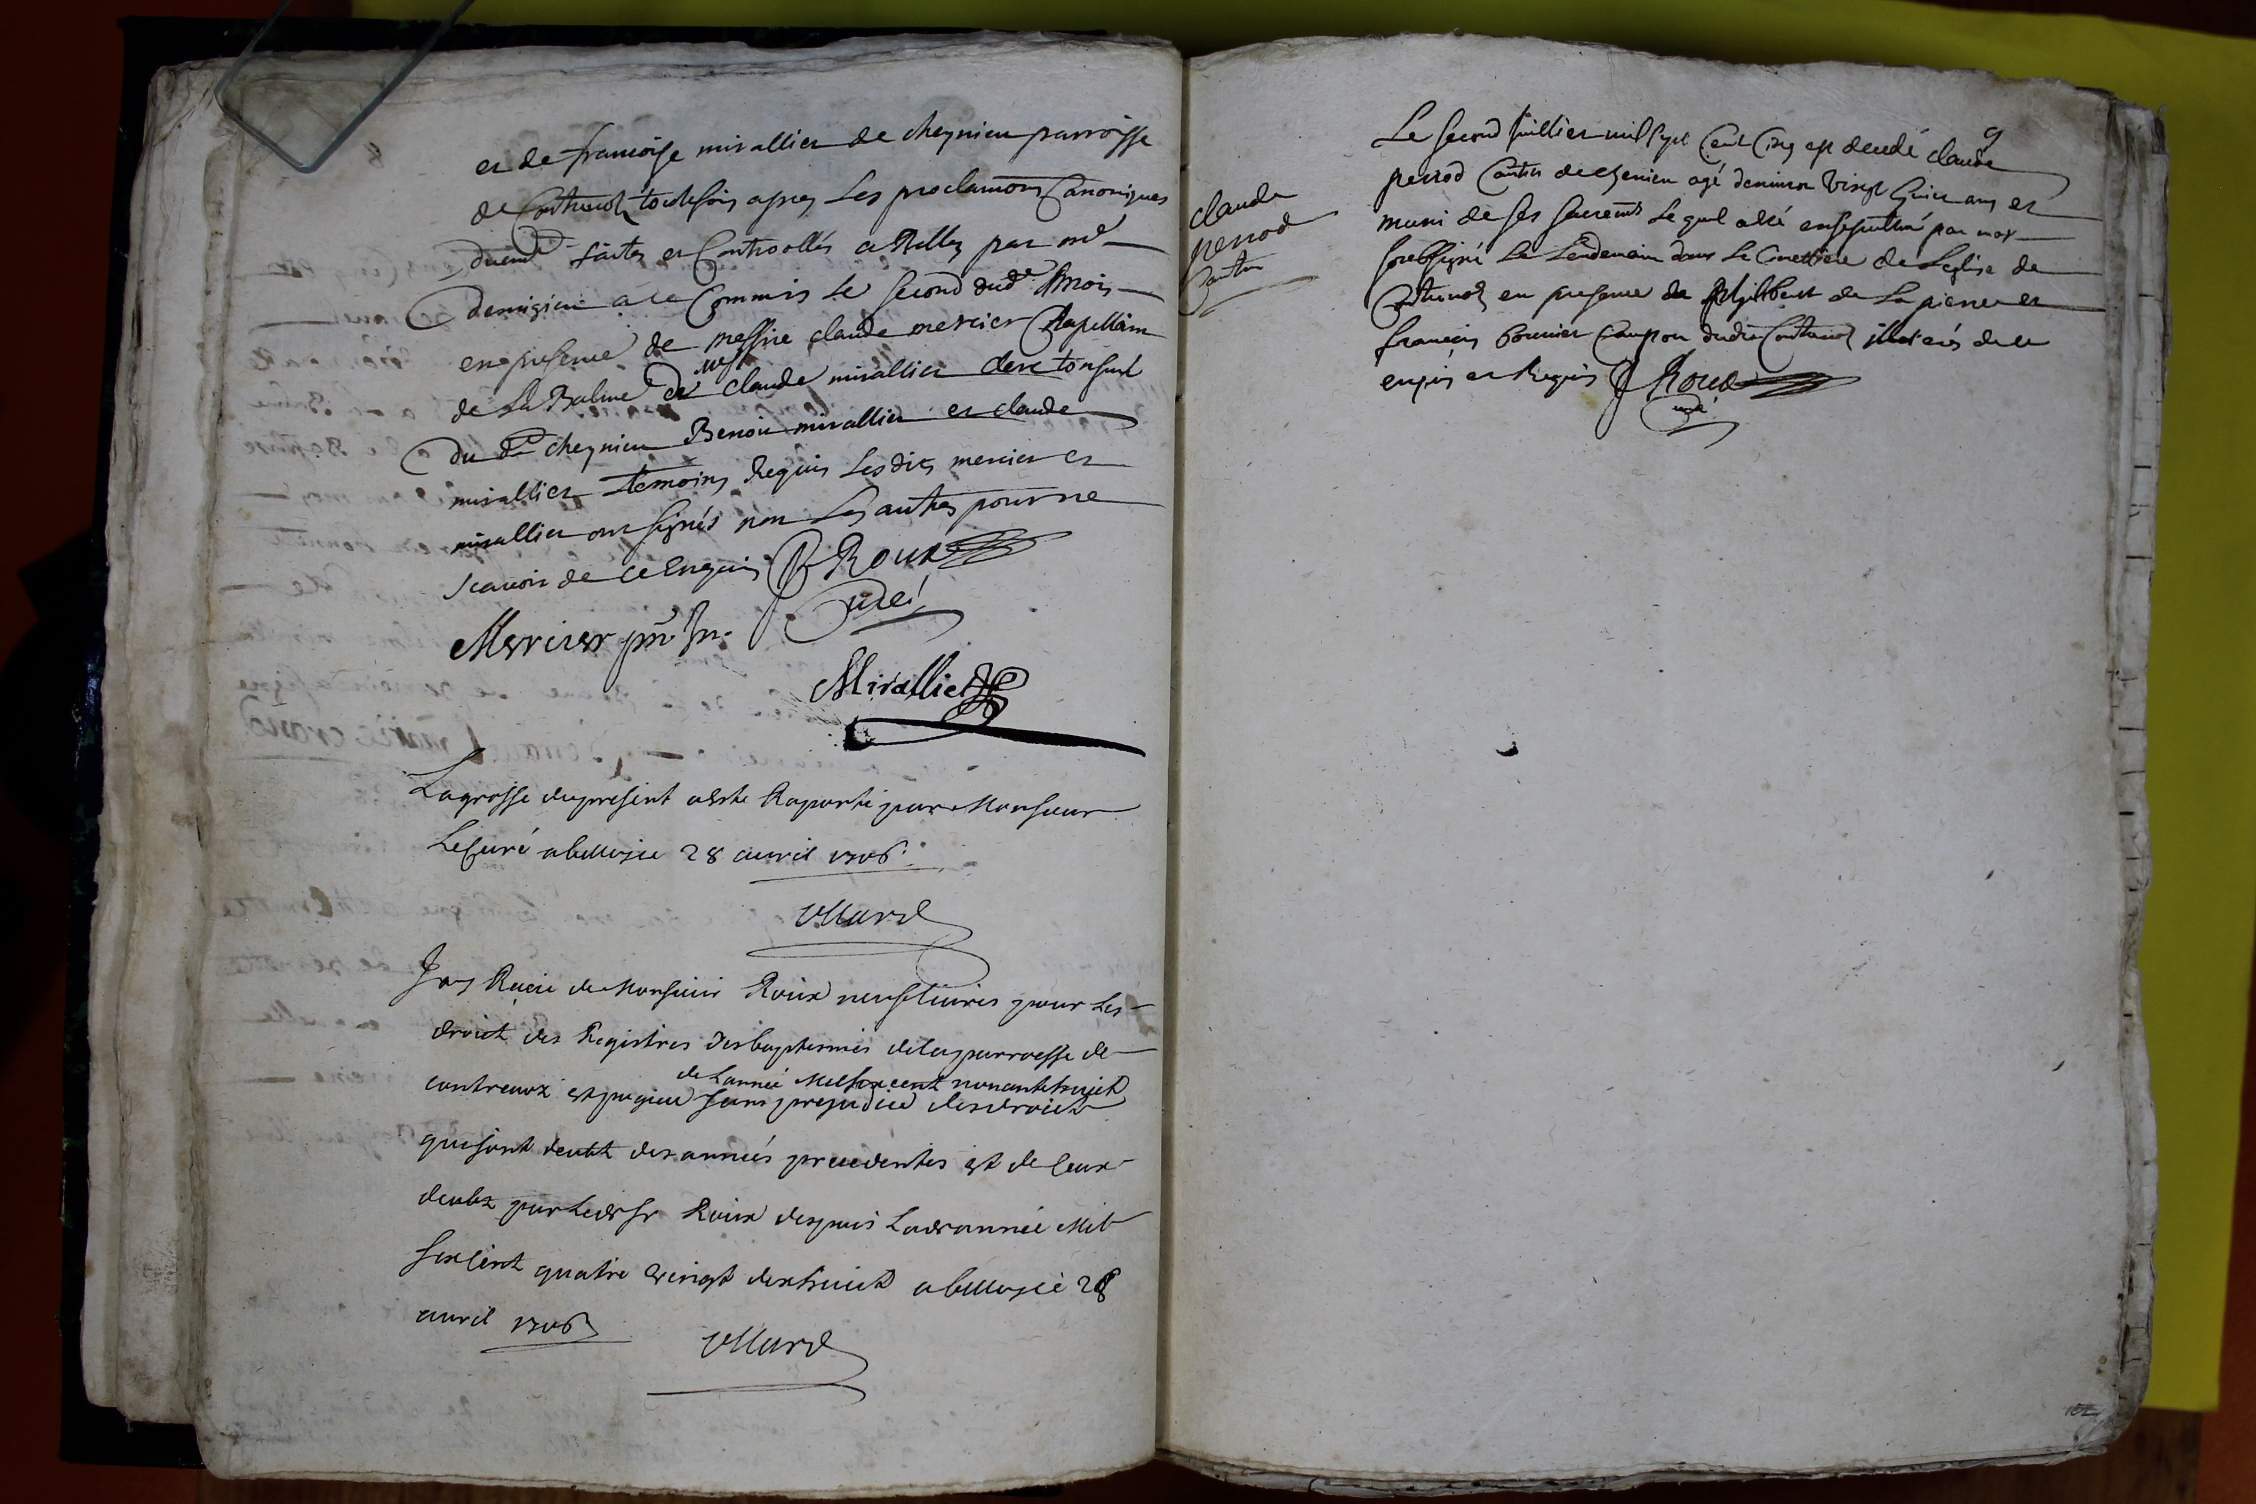 et de francoise mirallier de cheynieu parroisse
de Contrevoz toutesfois apres Les proclamaons Canoniques
duemt faites et Controollés a Rillez par mr
demigieu a ce Commis le second dud. mois
en presence de messire claude mercier Chapellain
de La Balme et mre claude mirallier clerc tonsuré
du dt cheynieu Benoit mirallier et claude
mirallier temoins Requis Lesdits mercier et
mirallier ont signés non Les autres pour ne
scavoir de ce Enquis Roux
Curé
Mercier
Mirallier
La grosse du present a esté Raporté par Monsieur
Le Curé a belley ce 28 avril 1706
Jay Receu de Monsieur Roux neuf Livres pour Les
droict des Registres des baptesmes de la parroesse de
de Lannée Mil six cent nonante huict
contrevoz et pugieu sans prejudice des droicts
qui sont deubt des années precedentes et de ceux
deubz par Ledt sr Roux despuis Ladt année Mil
six cent quatre vingt dix huict a belley ce 28
avril 1706
9
claude
perrod
Cantin
Le second Juillier mil sept Cent Cinq est decedé claude
perrod Cantin de chenieu agé denviron vingt huict ans et
muni de ses sacremts Lequel a esté ensepulturé par moy
soussigné Le Lendemain dans Le Cimettiere de Leglise de
Contrevoz en presence de Philibert de La pierre et
francois bonnier Campon dudit Contrevoz illiterés de ce
enquis et Requis Roux
curé